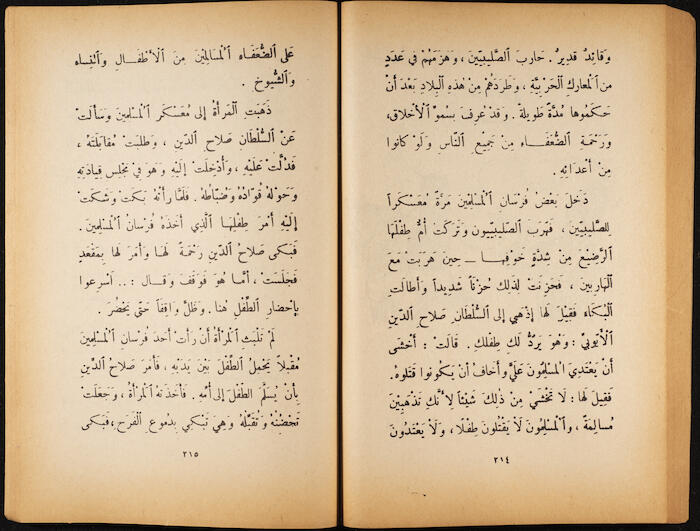 وَقَائِدٌ قَدِيرٌ . حَارَبَ ٱلصَّلِيبِيِّينَ ، وَهَزَمَهُمْ فِي عَدَدٍ
مِنَ ٱلْمَعَارِكِ ٱلْحَرْبِيَّةِ ، وَطَرَدَهُمْ مِنْ هَذِهِ ٱلْبِلَادِ بَعْدَ أَنْ
حَكَمُوهَا مُدَّةً طَوِيلَةً . وَقَدْ عُرِفَ بِسُمُوِّ ٱلْأَخْلَاقِ،
وَرَحْمَةِ ٱلضُّعَفَاءِ مِنْ جَمِيعِ ٱلنَّاسِ وَلَوْ كَانُوا
مِنْ أَعْدَائِهِ .
دَخَلَ بَعْضُ فُرْسَانِ ٱلْمُسْلِمِينَ مَرَّةً مُعَسْكَراً
لِلصَّلِيبِيِّينَ ، فَهَرَبَ ٱلصَّلِيبِيُّونَ وَتَرَكَتْ أُمٌّ طِفْلَهَا
ٱلرَّضِيعَ مِنْ شِدَّةِ خَوْفِهَا — حِينَ هَرَبَتْ مَعَ
ٱلْهَارِبِينَ ، فَحَزِنَتْ لِذَلِكَ حُزْناً شَدِيداً وَأَطَالَتِ
ٱلْبُكَاءَ فَقِيلَ لَهَا إِذْهَبِي إِلَى ٱلسُّلْطَانِ صَلَاحِ ٱلدِّينِ
ٱلْأَيُّوبِيِّ : وَهُوَ يَرُدُّ لَكِ طِفْلَكِ . قَالَتْ : أَخْشَى
أَنْ يَعْتَدِيَ ٱلْمُسْلِمُونَ عَلَيَّ وَأَخَافُ أَنْ يَكُونُوا قَتَلُوهُ.
فَقِيلَ لَهَا : لَا تَخْشَيْ مِنْ ذَلِكَ شَيْئاً لِأَنَّكِ تَذْهَبِينَ
مُسَالِمَةً ، وٱلْمُسْلِمُونَ لَا يَقْتُلُونَ طِفْلًا ، وَلَا يَعْتَدُونَ
٢١٤
عَلَى ٱلضُّعَفَاءِ ٱلْمُسَالِمِينَ مِنَ ٱلْأَطْفَالِ وَٱلنِّسَاءِ
وَٱلشُّيُوخِ .
ذَهَبَتِ ٱلْمَرْأَةُ إِلَى مُعَسْكَرِ ٱلْمُسْلِمِينَ وَسَأَلَتْ
عَنِ ٱلسُّلْطَانِ صَلَاحِ ٱلدِّينِ ، وَطَلَبَتْ مُقَابَلَتَهُ ،
فَدُلَّتْ عَلَيْهِ ، وَأُدْخِلَتْ إِلَيْهِ وَهُوَ فِي مَجْلِسِ قِيَادَتِهِ
وَحَوْلَهُ قُوَّادُهُ وَضُبَّاطُهُ . فَلَمَّا رَأَتْهُ بَكَتْ وَشَكَتْ
إِلَيْهِ أَمْرَ طِفْلِهَا ٱلَّذِي أَخَذَهُ فُرْسَانُ ٱلْمُسْلِمِينَ .
فَبَكَى صَلَاحُ ٱلدِّينِ رَحْمَةً لَهَا وَأَمَرَ لَهَا بِمَقْعَدٍ
فَجَلَسَتْ ، أَمَّا هُوَ فَوَقَفَ وَقَالَ : .. اَسْرِعُوا
بِإِحْضَارِ ٱلطِّفْلِ هُنَا . وَظَلَّ وَاقِفاً حَتَّى يَحْضُرَ .
لَمْ تَلْبَثِ ٱلْمَرْأَةُ أَنْ رَأَتْ أَحَدَ فُرْسَانِ ٱلْمُسْلِمِينَ
مُقْبِلًا يَحْمِلُ ٱلطِّفْلَ بَيْنَ يَدَيْهِ ، فَأَمَرَ صَلَاحُ ٱلدِّينِ
بِأَنْ يُسَلَّمَ ٱلطِّفْلُ إِلَى أُمِّهِ . فَأَخَذَتْهُ ٱلْمَرْأَةُ ، وَجَعَلَتْ
تَحْضُنُهُ وَتُقَبِّلُهُ وَهِيَ تَبْكِي بِدُمُوعِ ٱلْفَرَحِ ،فَبَكَى
٢١٥